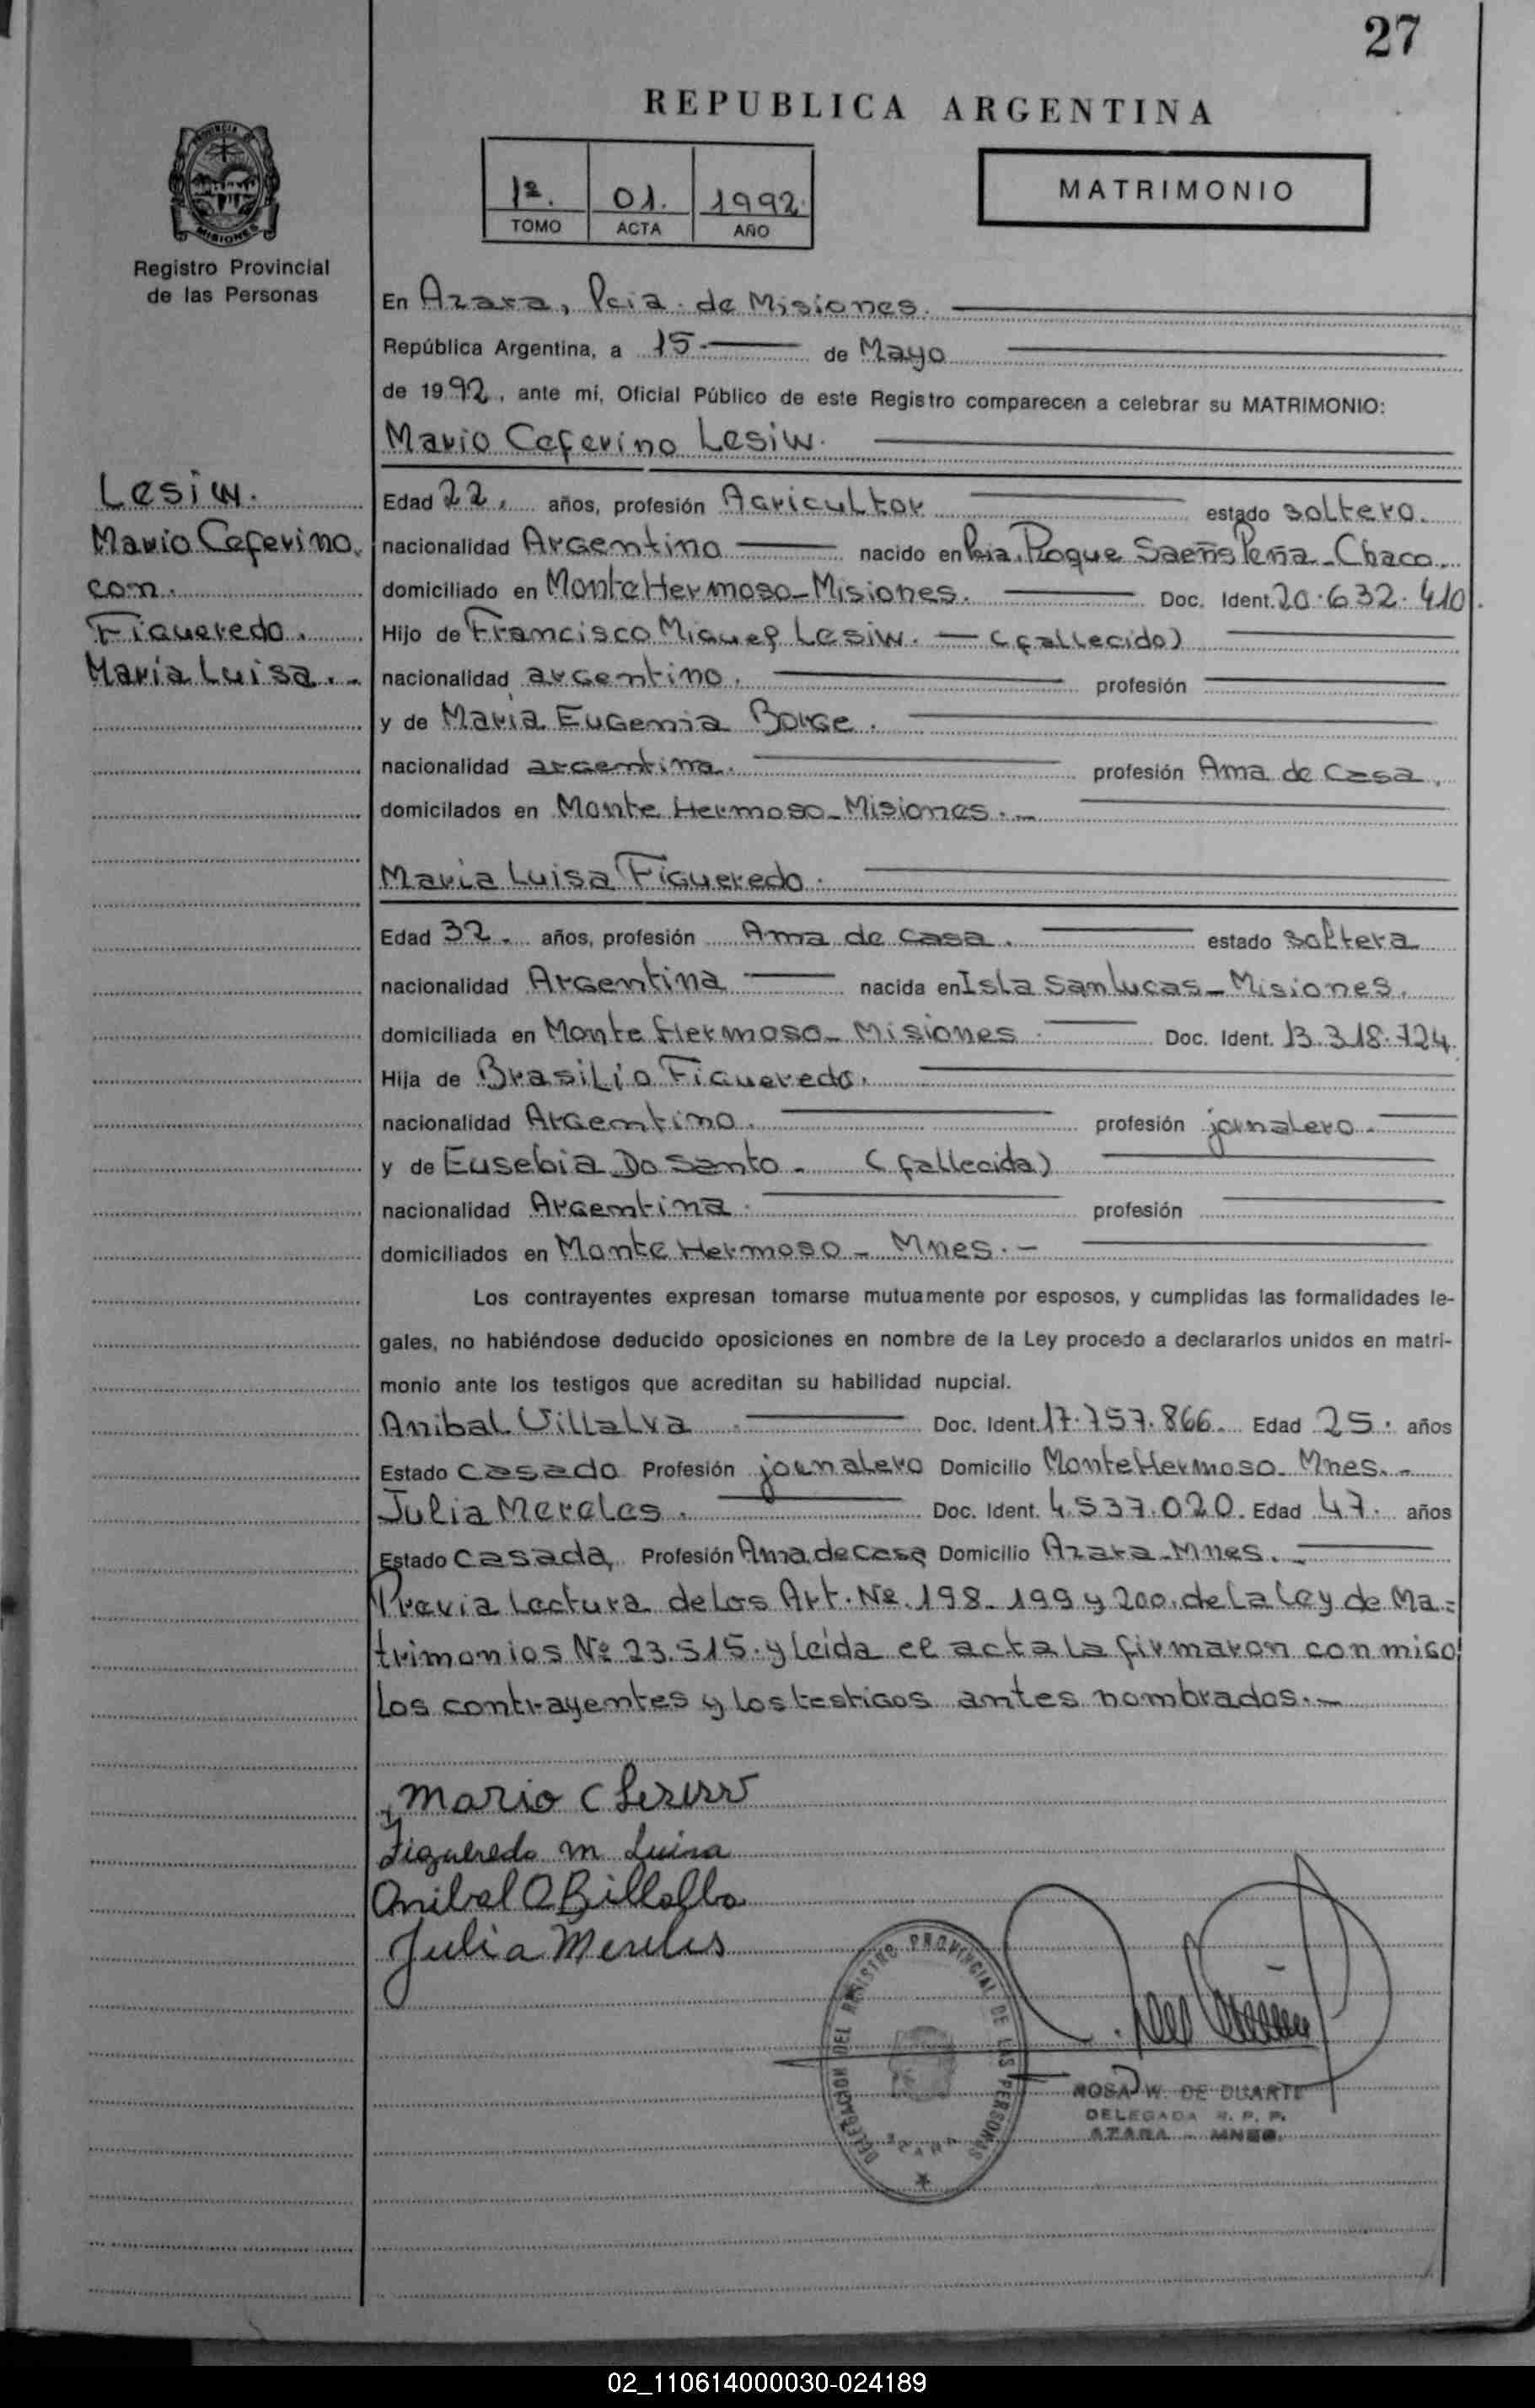 27
REPUBLICA ARGENTINA
1º. 01. 1992.
TOMO ACTA AÑO
MATRIMONIO
PROVINCIA DE
MISIONES
Registro Provincial
de las Personas
En Azara, Pcia. de Misiones.
República Argentina, a 15. de Mayo
de 1992, ante mi, Oficial Público de este Registro comparecen a celebrar su MATRIMONIO:
Mario Ceferino Lesiw.
Lesiw.
Mario Ceferino.
con.
Figueredo.
María Luisa.-
Edad 22, años, profesión Agricultor estado soltero.
nacionalidad Argentino nacido en Roque Saeñs Peña-Chaco.
domiciliado en Monte Hermoso-Misiones. Doc. Ident. 20.632.410.
Hijo de Francisco Miguel Lesiw. - (fallecido)
nacionalidad argentino. profesión
y de María Eugenia Borge.
nacionalidad argentina. profesión Ama de Casa.
domicilados en Monte Hermoso-Misiones.-
María Luisa Figueredo.
Edad 32. años, profesión Ama de casa. estado soltera
nacionalidad Argentina nacida en Isla San Lucas-Misiones.
domiciliada en Monte Hermoso-Misiones. Doc. Ident. 13.318.724.
Hija de Brasilio Figueredo.
nacionalidad Argentino. profesión jornalero.
y de Eusebia Do Santo. (fallecida)
nacionalidad Argentina. profesión
domiciliados en Monte Hermoso - Mnes.-
Los contrayentes expresan tomarse mutuamente por esposos, y cumplidas las formalidades le-
gales, no habiéndose deducido oposiciones en nombre de la Ley procedo a declararlos unidos en matri-
monio ante los testigos que acreditan su habilidad nupcial.
Anibal Villalva Doc. Ident. 17.757.866. Edad 25. años
Estado casado Profesión jornalero Domicilio Monte Hermoso-Mnes.-
Julia Mereles. Doc. Ident. 4.537.020. Edad 47. años
Estado casada, Profesión Ama de casa Domicilio Azara-Mnes.-
Previa Lectura de los Art. Nº. 198-199 y 200. de la Ley de Ma=
trimonios Nº 23.515. y leída el acta la firmaron conmigo
los contrayentes y los testigos antes nombrados.-
Mario C Lesiw
Figueredo M Luisa
Anibal O Billalba
Julia Mereles
DELEGACION DEL REGISTRO PROVINCIAL DE LAS PERSONAS
AZARA
ROSA W. DE DUARTE
DELEGADA R. P. P.
AZARA - MNES.
02_110614000030-024189